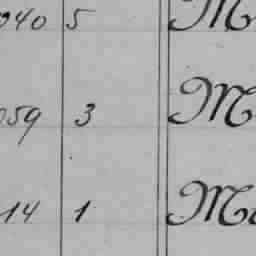 040 5 M
059 3 M
14 1 Ma